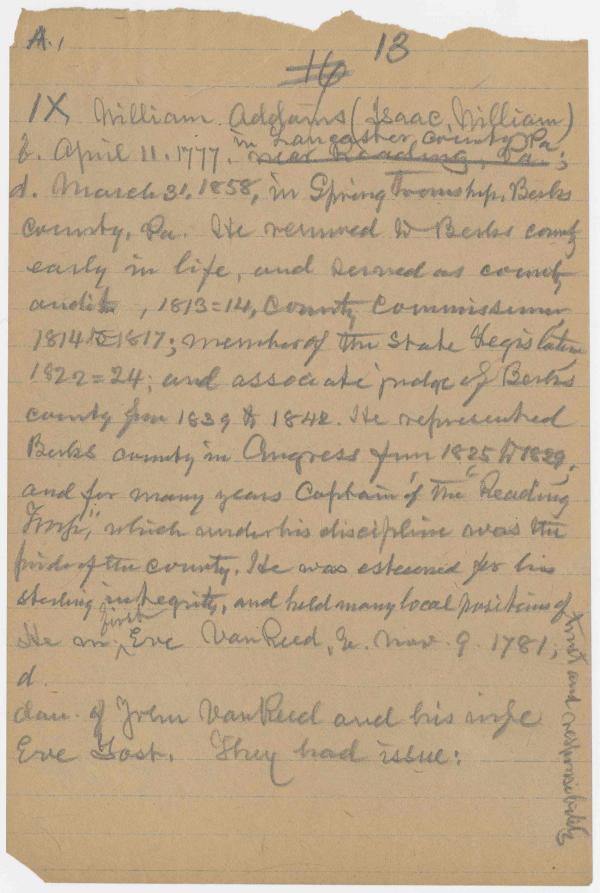 A.,
13
16
IX William Addams (Isaac, William)
in Lancaster county Pa
b. April 11. 1777. near Reading, Pa.;
d. March 31, 1858, in Spring Township, Berks
county, Pa. He removed to Berks county
early in life, and served as county
, 1813=14, County Commissioner
1814 to 1817; member of the State Legislature
1822=24; and associate judge of Berks
county from 1839 to 1842. He represented
Berks county in Congress from 1825 to 1829,
and for many years Captain of the "Reading
Troop", which under his discipline was the
pride of the county. He was esteemed for his
sterling integrity, and held many local positions of
trust and responsibility
first
He m. Eve VanReed, b. Nov. 9. 1781;
d.
dau. of John VanReed and his wife
Eve Yost. They had issue: